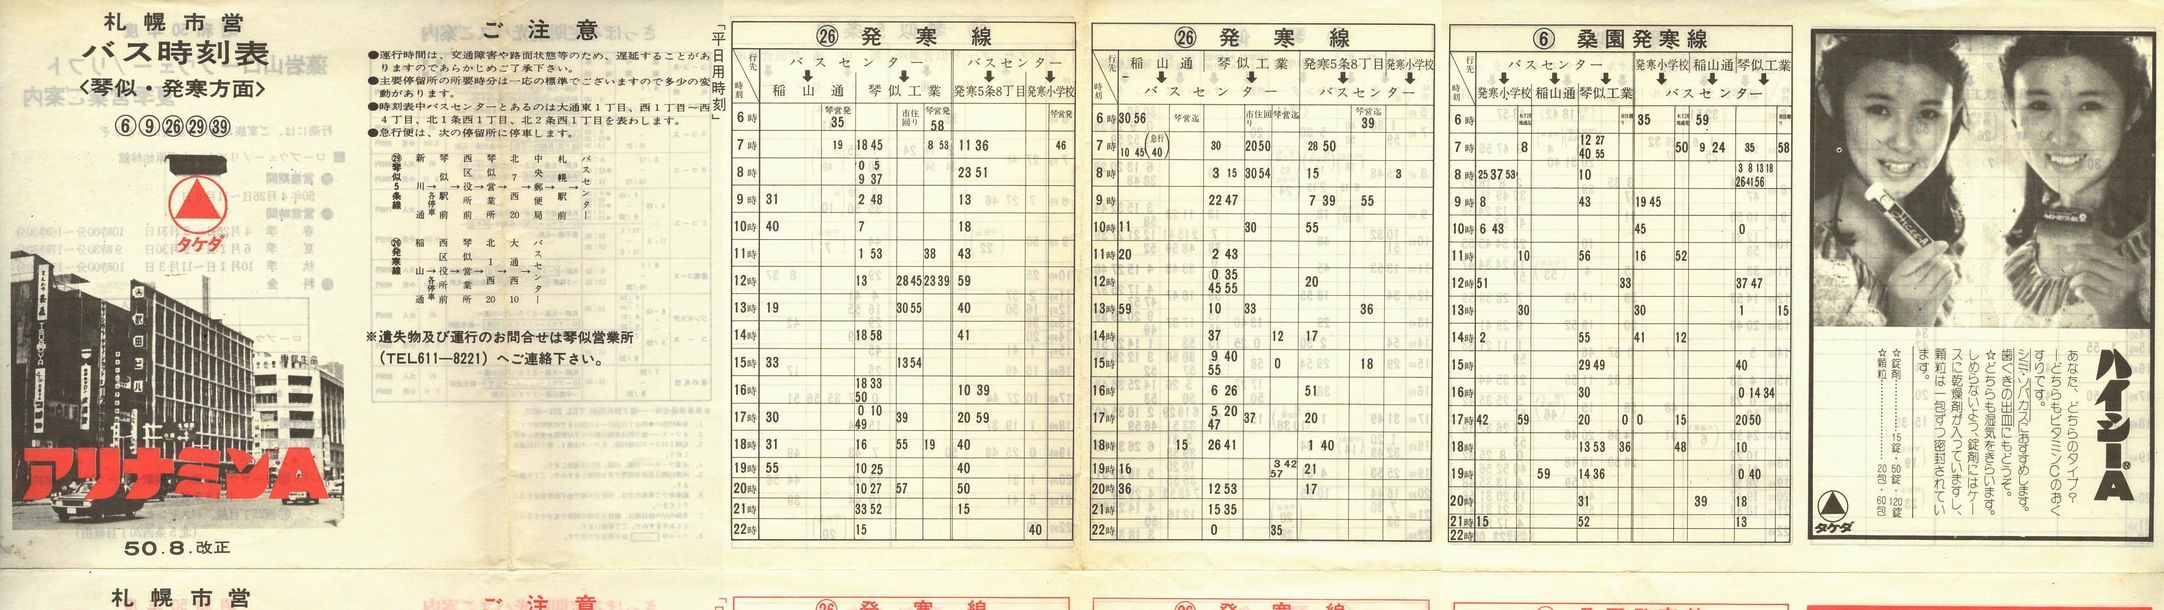 札幌市営
バス時刻表
<琴似・発寒方面>
⑥⑨㉖㉙㊴
タケダ
アリナミンA
50.8.改正
ご注意
●運行時間は、交通障害や路面状態等のため、遅延することがありますのであらかじめご了承下さい。
●主要停留所の所要時分は一応の標準でございますので多少の変動があります。
●時刻表中バスセンターとあるのは大通東1丁目、西1丁目〜西4丁目、北1条西1丁目、北2条西1丁目を表わします。
●急行便は、次の停留所に停車します。
㉙琴似5条線
新川通→各停車
琴似駅前→
西区役所前→
琴似営業所→
北7西20→
中央郵便局→
札幌駅前→
バスセンター
㉖発寒線
稲山通→各停車
西区役所前→
琴似営業所→
北1西20→
大通西10→
バスセンター
※遺失物及び運行のお問合せは琴似営業所
(TEL611—8221)へご連絡下さい。
「平日用時刻」
㉖ 発寒線
行先 時刻
バスセンター バスセンター
稲山通 琴似工業 発寒5条8丁目 発寒小学校
6時 琴営発 35 市住回り 琴営発 58 琴営発
7時 19 18 45 8 53 11 36 46
8時 0 5 9 37 23 51
9時 31 2 48 13
10時 40 7 18
11時 1 53 38 43
12時 13 28 45 23 39 59
13時 19 30 55 40
14時 18 58 41
15時 33 13 54
16時 18 33 50 10 39
17時 30 0 10 49 39 20 59
18時 31 16 55 19 40
19時 55 10 25 40
20時 10 27 57 50
21時 33 52 15
22時 15 40
㉖ 発寒線
行先 時刻
稲山通 琴似工業 発寒5条8丁目 発寒小学校
バスセンター バスセンター
6時 30 56 琴営迄 市住回り 琴営迄 琴営迄 39
7時 10 45 (急行 40) 30 20 50 28 50
8時 3 15 30 54 15 3
9時 22 47 7 39 55
10時 11 30 55
11時 20 2 43
12時 0 35 45 55 20
13時 59 10 33 36
14時 37 12 17
15時 9 40 55 0 18
16時 6 26 51
17時 5 20 47 37 20
18時 15 26 41 1 40
19時 16 3 42 57 21
20時 36 12 53 17
21時 15 35
22時 0 35
⑥ 桑園発寒線
行先 時刻
バスセンター 発寒小学校 稲山通 琴似工業
発寒小学校 稲山通 琴似工業 バスセンター
6時 35 59
7時 8 12 27 40 55 50 9 24 35 58
8時 25 37 53 10 3 8 13 18 26 41 56
9時 8 43 19 45
10時 6 43 45 0
11時 10 56 16 52
12時 51 33 37 47
13時 30 30 1 15
14時 2 55 41 12
15時 29 49 40
16時 30 0 14 34
17時 42 59 20 0 0 15 20 50
18時 13 53 36 48 10
19時 59 14 36 0 40
20時 31 39 18
21時 15 52 13
22時
ハイシーA
あなた、どちらのタイプ?
—どちらもビタミンCのおくすりです。
シミ・ソバカスにおすすめします。
歯ぐきの出血にもどうぞ。
☆どちらも湿気をきらいます。
しめらないよう、錠剤にはケースに乾燥剤が入っていますし、顆粒は一包ずつ密封されています。
☆錠剤……15錠・50錠・120錠
☆顆粒……20包・60包
タケダ
札幌市営
ご注意
㉖ 発寒線
㉖ 発寒線